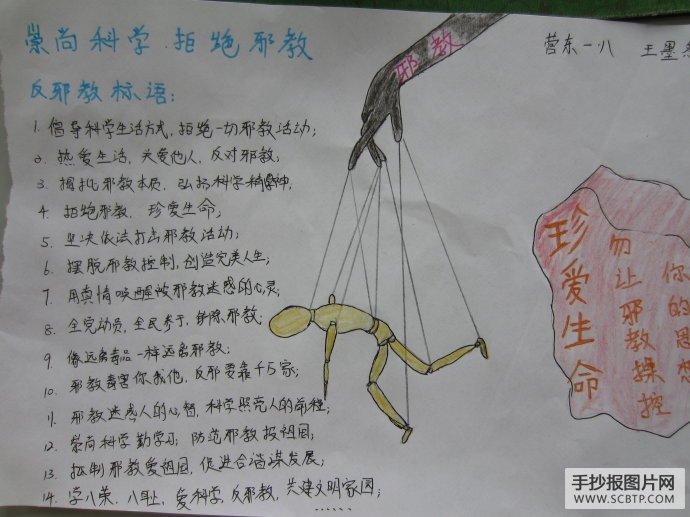 崇尚科学 拒绝邪教
反邪教标语:
1. 倡导科学生活方式, 拒绝一切邪教活动;
2. 热爱生活, 关爱他人, 反对邪教;
3. 揭批邪教本质, 弘扬科学精神,
4. 拒绝邪教, 珍爱生命;
5. 坚决依法打击邪教活动;
6. 摆脱邪教控制, 创造完美人生;
7. 用真情唤醒被邪教迷惑的心灵;
8. 全党动员, 全民参与, 铲除邪教;
9. 像远离毒品一样远离邪教;
10. 邪教毒害你我他, 反邪要靠千万家;
11. 邪教迷惑人的心智, 科学照亮人的前程;
12. 崇尚科学勤学习, 防范邪教报祖国;
13. 抵制邪教爱祖国, 促进合谐谋发展;
14. 学八荣、八耻, 爱科学, 反邪教, 共建文明家园;
......
邪教
营东一八 王墨
珍爱生命
勿让邪教操控
你的思想
手抄报图片网
WWW.SCBTP.COM